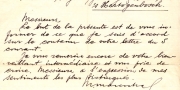 Monsieur,
Le but de la présente est de vous in-
former de ce que je suis d'accord
sur le contenu de votre lettre du
courant.
Je vous remercie encore de votre bien-
veillant intermédiaire et vous prie de
croire, Monsieur, à l'expression de mes
sentiments les plus distingués